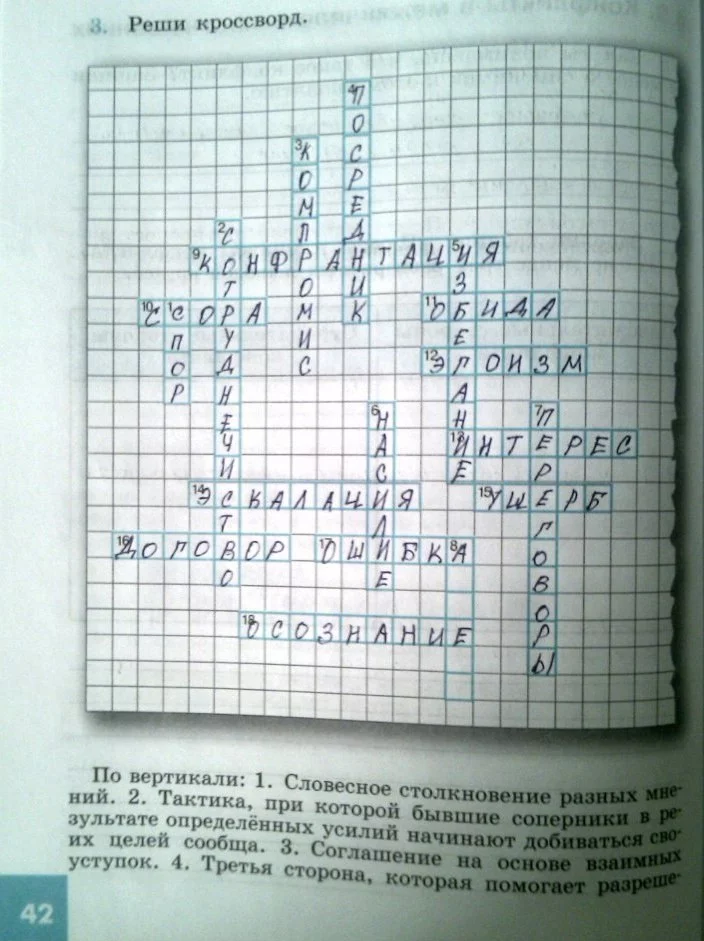 3. Реши кроссворд.
4ПОСРЕДНИК
3КОМПРОМИСС
2СОТРУДНЕЧИСТВО
9КОНФРАНТАЦИЯ
5ИЗБЕГАНИЕ
10ССОРА
1СПОР
11ОБИДА
12ЭГОИЗМ
6НАСИЛИЕ
7ПЕРЕГОВОРЫ
13ИНТЕРЕС
14ЭСКАЛАЦИЯ
15УЩЕРБ
16ДОГОВОР
17ОШИБКА
8
18ОСОЗНАНИЕ
По вертикали: 1. Словесное столкновение разных мне-
ний. 2. Тактика, при которой бывшие соперники в ре-
зультате определённых усилий начинают добиваться сво-
их целей сообща. 3. Соглашение на основе взаимных
уступок. 4. Третья сторона, которая помогает разреше-
42